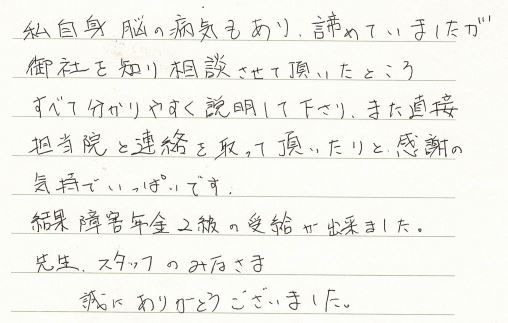 私自身 脳の病気もあり、諦めていましたが
御社を知り相談させて頂いたところ
すべて分かりやすく説明して下さり、また直接
担当院と連絡を取って頂いたりと、感謝の
気持でいっぱいです。
結果 障害年金2級の受給が出来ました。
先生、スタッフのみなさま
誠にありがとうございました。